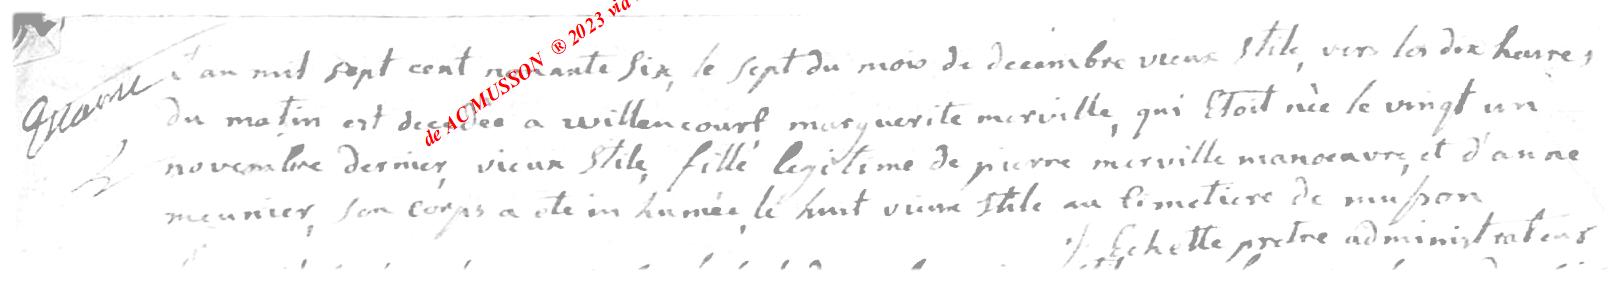 L'an mil sept cent nonante six, le sept du mois de decembre vieux stile, vers les dix heures,
du matin est decedée a willencourt marguerite merville, qui Etoit née le vingt un
novembre dernier, vieux stile, fille legitime de pierre merville manoeuvre, et d'anne
meunier, son corps a ete in humée, le huit vieux stile au cimetiere de musson
J. Echette pretre administrateur
de ACMUSSON ® 2023 via